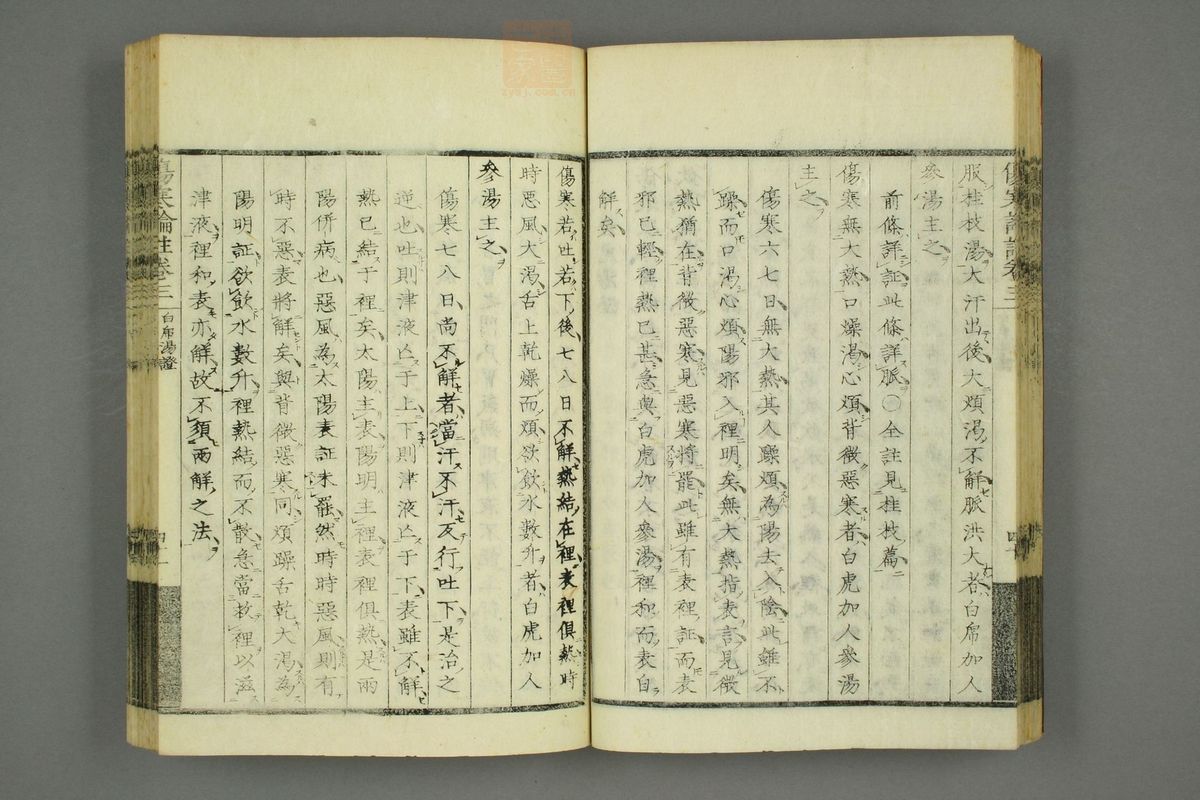 服桂枝湯大汗出後大煩渴不解脈洪大者白虎加人
參湯主之
前條詳證此條詳脈○全註見桂枝篇
傷寒無大熱口燥渴心煩背微惡寒者白虎加人參湯
主之
傷寒六七日無大熱其人躁煩為陽去入陰此雖不
躁而口渴心煩陽邪入裡明矣無大熱指表言見微
熱猶在背微惡寒見惡寒將罷此雖有表裡証而表
邪已輕裡熱已甚急與白虎加人參湯裡和而表自
解矣
傷寒若吐若下後七八日不解熱結在裡表裡俱熱時
時惡風大渴舌上乾燥而煩欲飲水數升者白虎加人
參湯主之
傷寒七八日尚不解者當汗不汗反行吐下是治之
逆也吐則津液亾于上下則津液亾于下表雖不解
熱已結于裡矣太陽主表陽明主裡表裡俱熱是兩
陽併病也惡風為太陽表証未罷然時時惡風則有
時不惡表將解矣與背微惡寒同煩躁舌乾大渴為
陽明証欲飲水數升裡熱結而不散急當救裡以滋
津液裡和表亦解故不須兩解之法
傷寒論註卷三
白虎湯證
zysj.com.cn